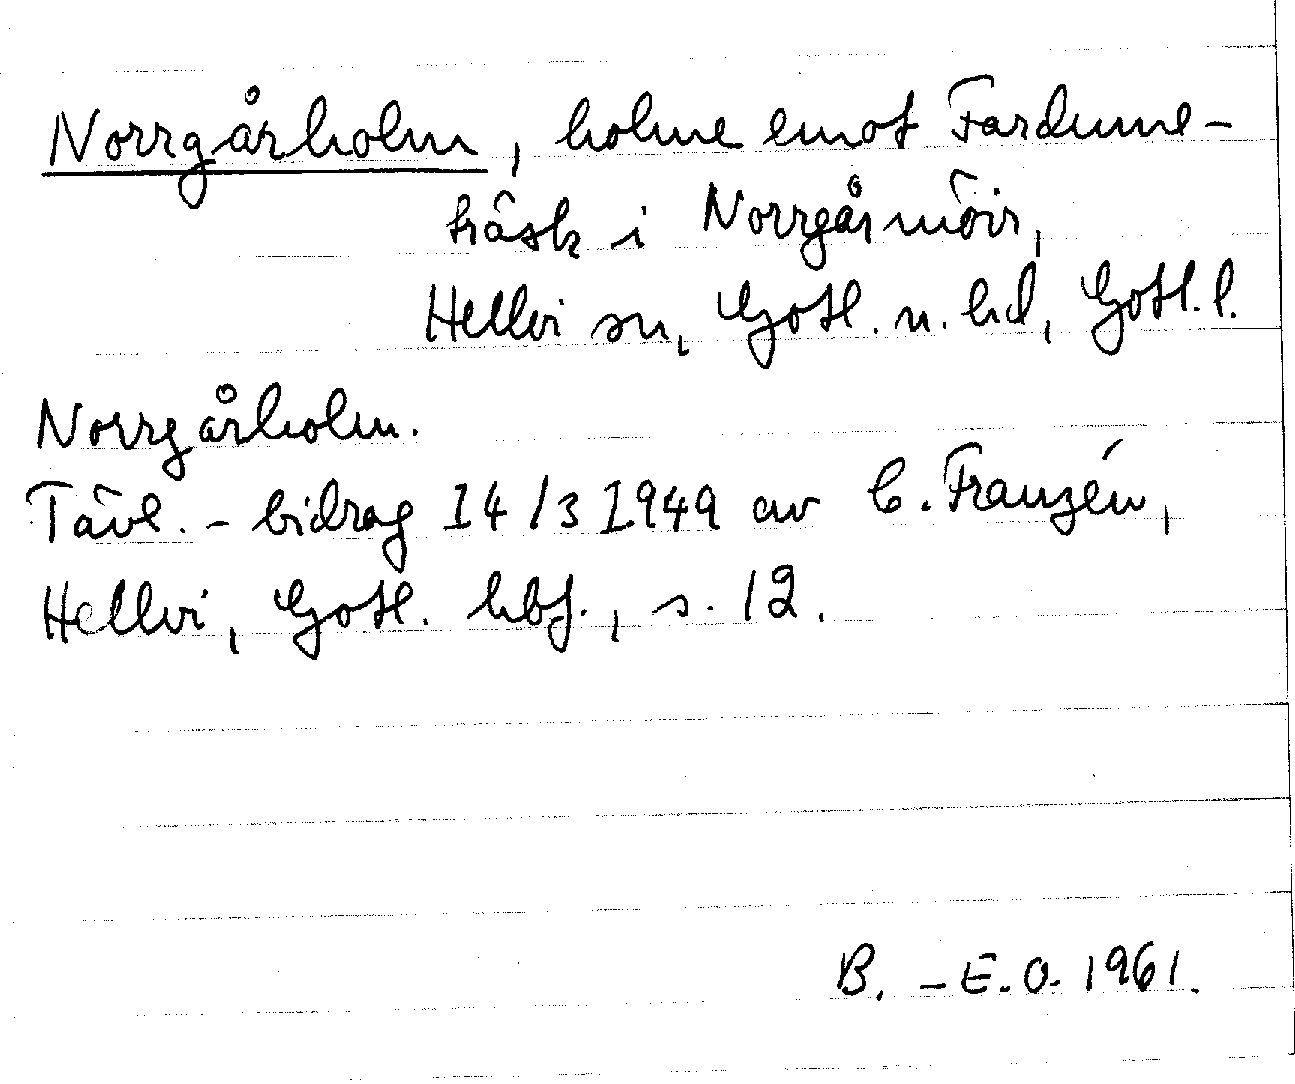 Norrgårholm, holme emot Fardume-
träsk i Norrgårmöir,
Hellvi sn, Gotl. n. hd, Gotl. l.
Norrgårholm.
Tävl. - bidrag 14/3 1949 av C. Franzén,
Hellvi, Gotl. hbf., s. 12.
B. - E. O. 1961.